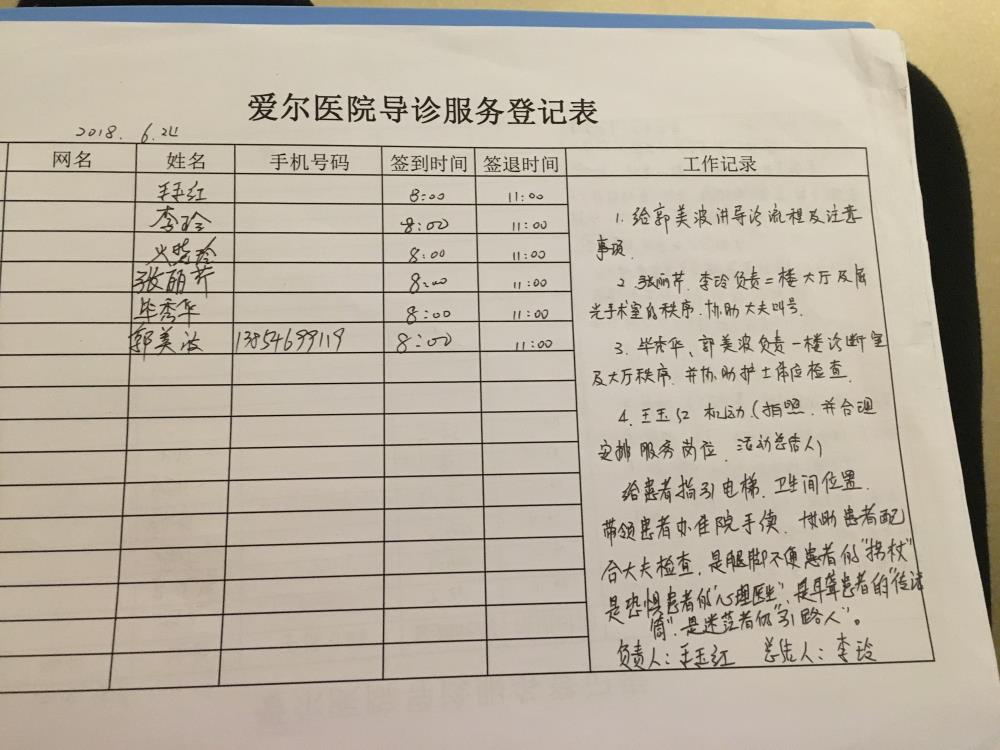 爱尔医院导诊服务登记表
2018. 6.24
网名 姓名 手机号码 签到时间 签退时间 工作记录
王玉红 8:00 11:00
李玲 8:00 11:00
8:00 11:00
张丽芹 8:00 11:00
毕秀华 8:00 11:00
郭美波 13854699119 8:00 11:00
1. 给郭美波讲导诊流程及注意
事项.
2. 张丽芹. 李玲负责二楼大厅及屈
光手术室的秩序. 协助大夫叫号.
3. 毕秀华、郭美波负责一楼诊断室
及大厅秩序. 并协助护士体位检查.
4. 王玉红 机动.(拍照. 并合理
安排服务岗位. 活动总结人)
给患者指引电梯. 卫生间位置.
带领患者办住院手续. 协助患者配
合大夫检查. 是腿脚不便患者的"拐杖"
是恐惧患者的"心理医生". 是耳聋患者的"传话
筒". 是迷茫者的"引路人"。
负责人:王玉红 总结人:李玲